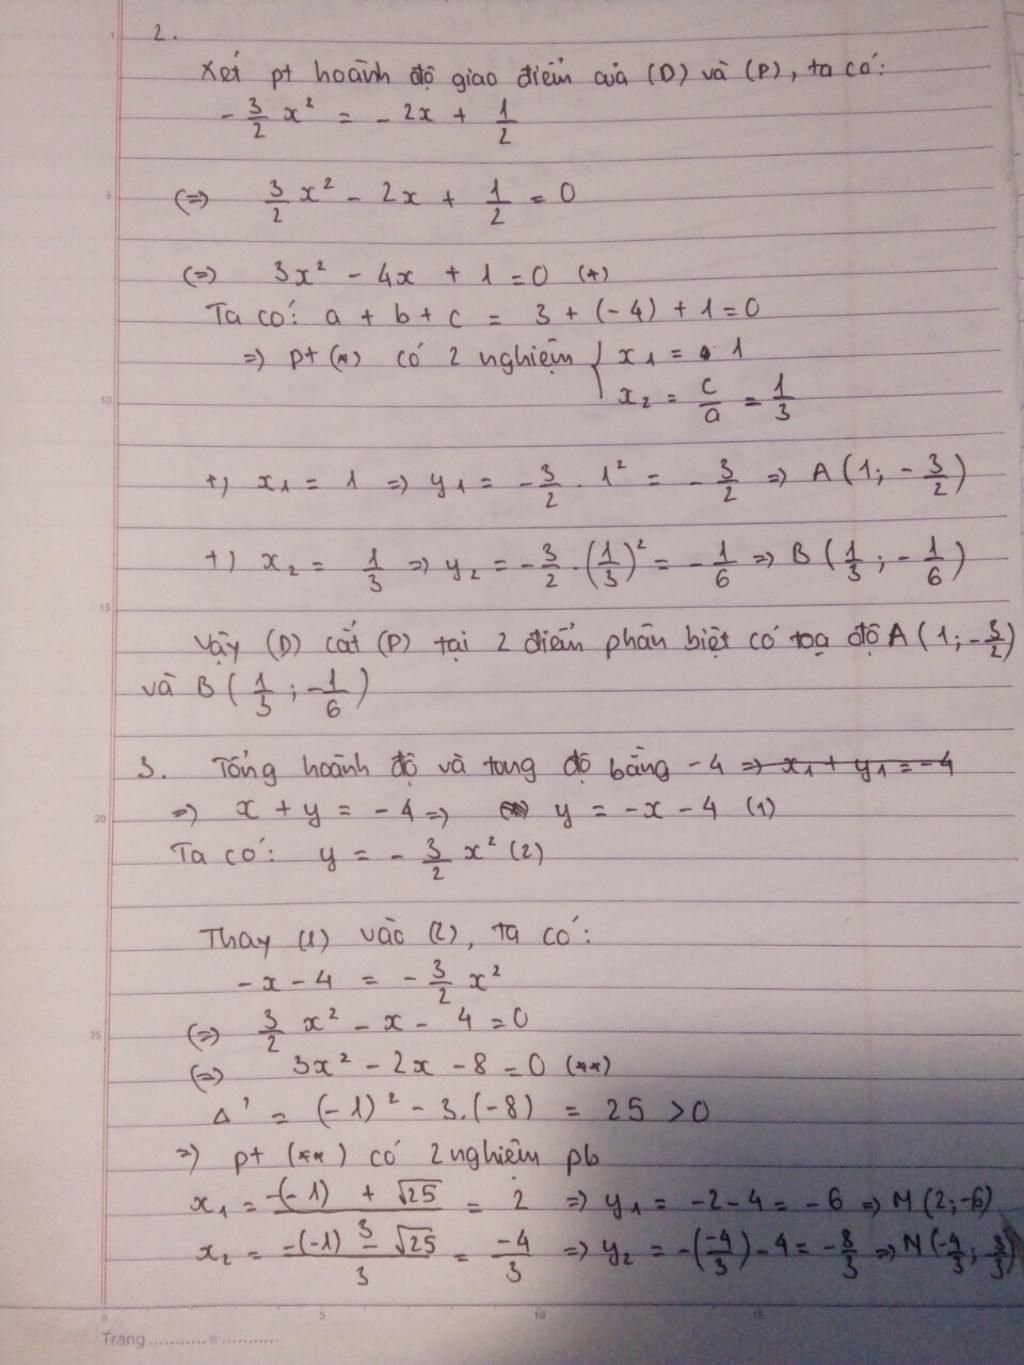 2.
Xét pt hoành độ giao điểm của (D) và (P), ta có:
- 3/2 x² = - 2x + 1/2
(=) 3/2 x² - 2x + 1/2 = 0
(=) 3x² - 4x + 1 = 0 (*)
Ta có: a + b + c = 3 + (- 4) + 1 = 0
=) pt (*) có 2 nghiệm { x₁ = 1
x₂ = c/a = 1/3
+) x₁ = 1 =) y₁ = - 3/2 . 1² = - 3/2 =) A (1; - 3/2)
+) x₂ = 1/3 =) y₂ = - 3/2 . (1/3)² = - 1/6 =) B (1/3 ; - 1/6)
Vậy (D) cắt (P) tại 2 điểm phân biệt có toạ độ A (1; - 3/2)
và B (1/3 ; - 1/6)
3. Tổng hoành độ và tung độ bằng -4 =) x₁ + y₁ = -4
=) x + y = - 4 =) y = - x - 4 (1)
Ta có: y = - 3/2 x² (2)
Thay (1) vào (2), ta có:
- x - 4 = - 3/2 x²
(=) 3/2 x² - x - 4 = 0
(=) 3x² - 2x - 8 = 0 (**)
Δ' = (- 1)² - 3.(- 8) = 25 > 0
=) pt (**) có 2 nghiệm pb
x₁ = -(- 1) + √25 / 3 = 2 =) y₁ = -2 - 4 = - 6 =) M (2; -6)
x₂ = -(-1) - √25 / 3 = -4/3 =) y₂ = -(-4/3) - 4 = - 8/3 =) N (-4/3 ; -8/3)
Trang
1
5
10
15
20
25
0
5
10
15